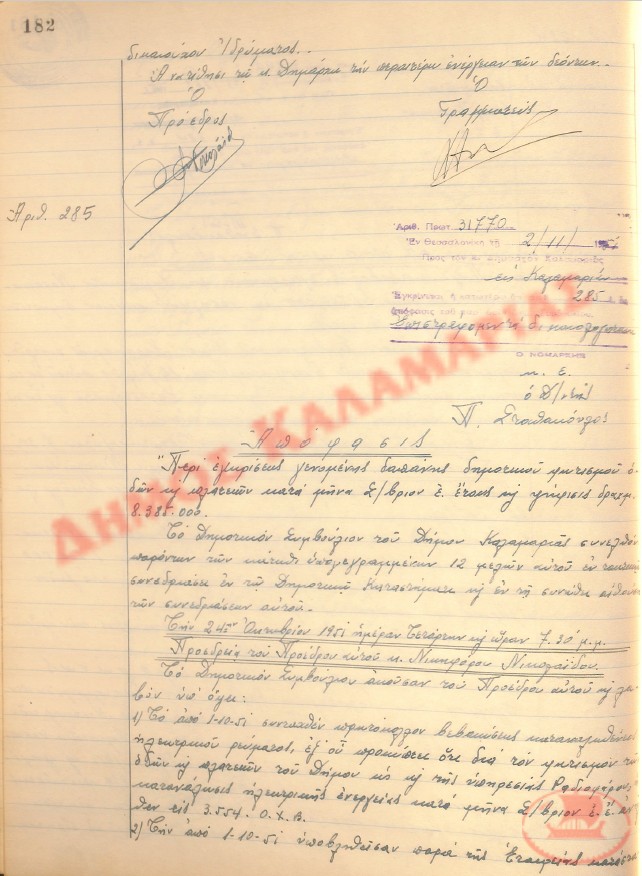 182
δικαιούχου Ἱδρύματος..
Ἀνατίθησι τῷ κ. Δημάρχῳ τὴν περαιτέρω ἐνέργειαν τῶν δεόντων..
Ὁ Ὁ
Πρόεδρος Γραμματεύς
Ἀριθ. 285
Ἀριθ. Πρωτ. 31770
Ἐν Θεσσαλονίκῃ τῇ 2/11/
Πρὸς τὸν κ. Δήμαρχον Καλαμαριᾶς
εἰς Καλαμαριάν
285
Ἐπιστρέφομεν τὰ δικαιολογητικά
Ο ΝΟΜΑΡΧΗΣ
κ. ε.
ὁ Δ/ντὴς
Π. Σταθακόπουλος
ΔΗΜΟΣ ΚΑΛΑΜΑΡΙΑΣ
Ἀπόφασις
"Περὶ ἐγκρίσεως γενομένης δαπάνης δημοτικοῦ φωτισμοῦ ὁ-
δῶν κ πλατειῶν κατὰ μῆνα Σ/βριον ἐ. ἔτους κ ψήφισις δραχμ.
8.385.000.
Τὸ Δημοτικὸν Συμβούλιον τοῦ Δήμου Καλαμαριᾶς συνελθὸν
παρόντων τῶν κάτωθι ὑπογεγραμμένων 12 μελῶν αὐτοῦ ἐν τακτικῇ
συνεδριάσει ἐν τῷ Δημοτικῷ Καταστήματι κ ἐν τῇ συνήθει αἰθούσῃ
τῶν συνεδριάσεων αὐτοῦ.
Τὴν 24ην Ὀκτωβρίου 1951 ἡμέραν Τετάρτην κ ὥραν 7.30 μ.μ.
Προεδρείᾳ τοῦ Προέδρου αὐτοῦ κ. Νικηφόρου Νικολαΐδου.
Τὸ Δημοτικὸν Συμβούλιον ἀκοῦσαν τοῦ Προέδρου αὐτοῦ κ λα-
βὸν ὑπ' ὄψει:
1) Τὸ ἀπὸ 1-10-51 συνταχθὲν πρωτόκολλον βεβαιώσεως καταναλωθέντος
ἠλεκτρικοῦ ρεύματος, ἐξ οὗ προκύπτει ὅτι διὰ τὸν φωτισμὸν τῶν
ὁδῶν κ πλατειῶν τοῦ Δήμου ὡς κ τῆς ὑπηρεσίας Ραδιοφώνου,
κατανάλωσις ἠλεκτρικῆς ἐνεργείας κατὰ μῆνα Σ/βριον ἐ. ἔ.
θεν εἰς 3.554. Ο.Χ.Β.
2) Τὴν ἀπὸ 1-10-51 ὑποβληθεῖσαν παρὰ τῆς Ἑταιρείας